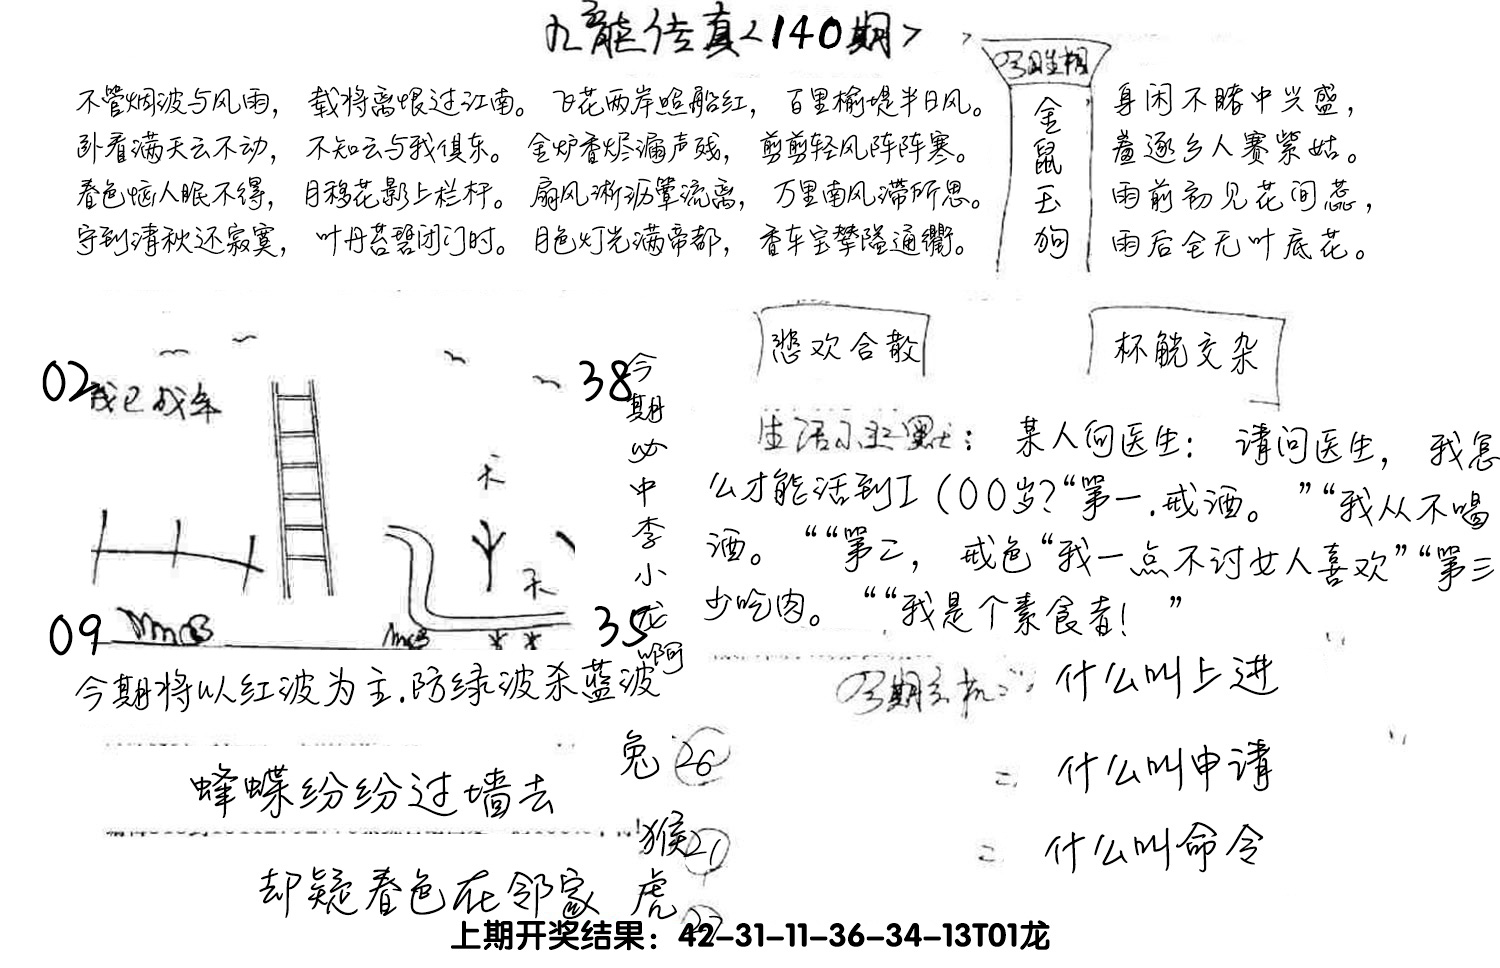 九龙传真<140期>
不管烟波与风雨， 载将离恨过江南。 飞花两岸照船红， 百里榆堤半日风。
卧看满天云不动， 不知云与我俱东。 金炉香烬漏声残， 剪剪轻风阵阵寒。
春色恼人眠不得， 月移花影上栏杆。 扇风淅沥簟流离， 万里南风滞所思。
守到清秋还寂寞， 叶丹苔碧闭门时。 月色灯光满帝都， 香车宝辇隘通衢。
金鼠玉狗
身闲不睹中兴盛，
羞逐乡人赛紫姑。
雨前初见花间蕊，
雨后全无叶底花。
悲欢合散
杯觥交杂
02
我已成年
38
今期必中李小龙啊
天
天
09
35
今期将以红波为主.防绿波杀蓝波
生活小幽默： 某人向医生： 请问医生， 我怎
么才能活到工(00岁?“第一.戒酒。”“我从不喝
酒。““第二， 戒色“我一点不讨女人喜欢”“第三
少吃肉。““我是个素食者！”
今期玄机: 什么叫上进
= 什么叫申请
= 什么叫命令
蜂蝶纷纷过墙去
却疑春色在邻家
兔 26
猴 21
虎
上期开奖结果：42-31-11-36-34-13T01龙